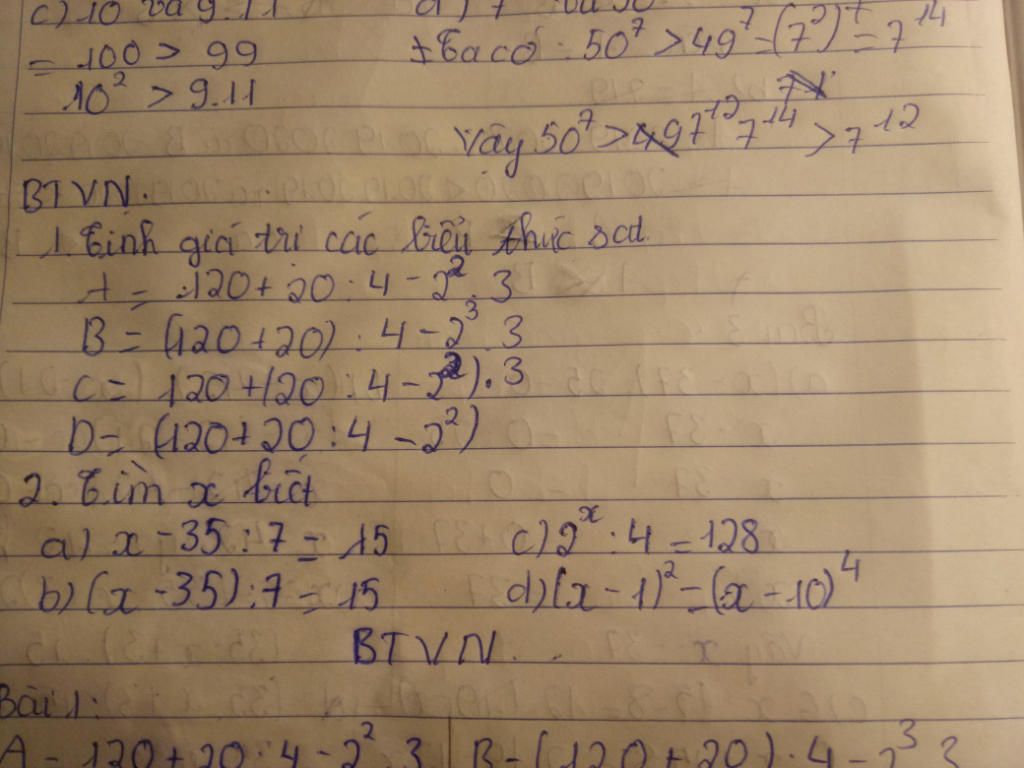 c) 10 và 9.11
= 100 > 99
10² > 9.11
+ Ta có : 50⁷ > 49⁷ = (7²)⁷ = 7¹⁴
Vậy 50⁷ > 7¹⁴ > 7¹²
BTVN.
1. Tính giá trị các biểu thức sau.
A = 120 + 20 : 4 - 2² . 3
B = (120 + 20) : 4 - 2³ . 3
C = 120 + (20 : 4 - 2²) . 3
D = (120 + 20 : 4 - 2²)
2. Tìm x biết
a) x - 35 : 7 = 15 c) 2ˣ : 4 = 128
b) (x - 35) : 7 = 15 d) (x - 1)² = (x - 10)⁴
BTVN.
Bài 1 :
A = 120 + 20 : 4 - 2² . 3 B = (120 + 20) : 4 - 2³ . 3